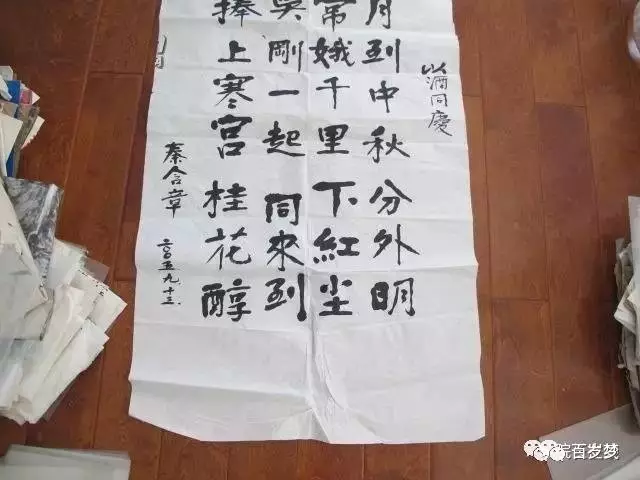 以酒同慶
月到中秋分外明
常娥千里下紅尘
吳剛一起同來到
捧上寒宫桂花醇
秦含章
二〇〇五九十三
院百岁梦